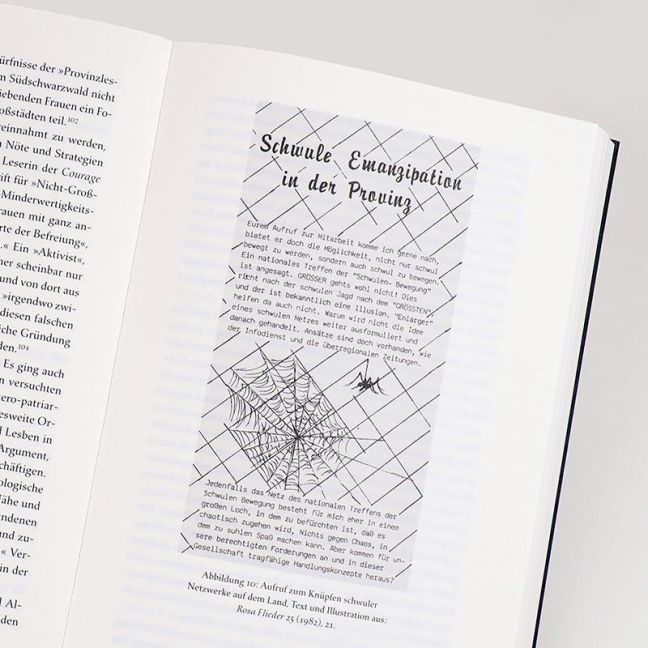 ürfnisse der »Provinzles-
m Südschwarzwald nicht
iebenden Frauen ein Fo-
oßstädten teil.102
ereinnahmt zu werden,
n Nöte und Strategien
Leserin der Courage
rift für »Nicht-Groß-
»Minderwertigkeits-
rauen mit ganz an-
rte der Befreiung«,
.« Ein »Aktivist«,
ner scheinbar nur
und von dort aus
»irgendwo zwi-
diesen falschen
liche Gründung
den.104
Es ging auch
n versuchten
ero-patriar-
desweite Or-
d Lesben in
Argument,
chäftigen.
ologische
Nähe und
undenen
und zu-
« Ver-
in der
d Al-
oden
Schwule Emanzipation
in der Provinz
Eurem Aufruf zur Mitarbeit komme ich gerne nach,
bietet er doch die Möglichkeit, nicht nur schwul
bewegt zu werden, sondern auch schwul zu bewegen.
Ein nationales Treffen der "Schwulen- Bewegung"
ist angesagt. GRÖSSER gehts wohl nicht! Dies
richt nach der schwulen Jagd nach dem "GRÖSSTEN",
und der ist bekanntlich eine Illusion. "Enlarger"
helfen da auch nicht. Warum wird nicht die Idee
eines schwulen Netzes weiter ausformuliert und
danach gehandelt. Ansätze sind doch vorhanden, wie
der Infodienst und die überregionalen Zeitungen.
Jedenfalls das Netz des nationalen Treffens der
Schwulen Bewegung besteht für mich eher in einem
großen Loch, in dem zu befürchten ist, daß es
chaotisch zugehen wird, Nichts gegen Chaos, in
dem zu suhlen Spaß machen kann. Aber kommen für un-
sere berechtigten Forderungen an und in dieser
Gesellschaft tragfähige Handlungskonzepte heraus?
Abbildung 10: Aufruf zum Knüpfen schwuler
Netzwerke auf dem Land, Text und Illustration aus:
Rosa Flieder 25 (1982), 21.